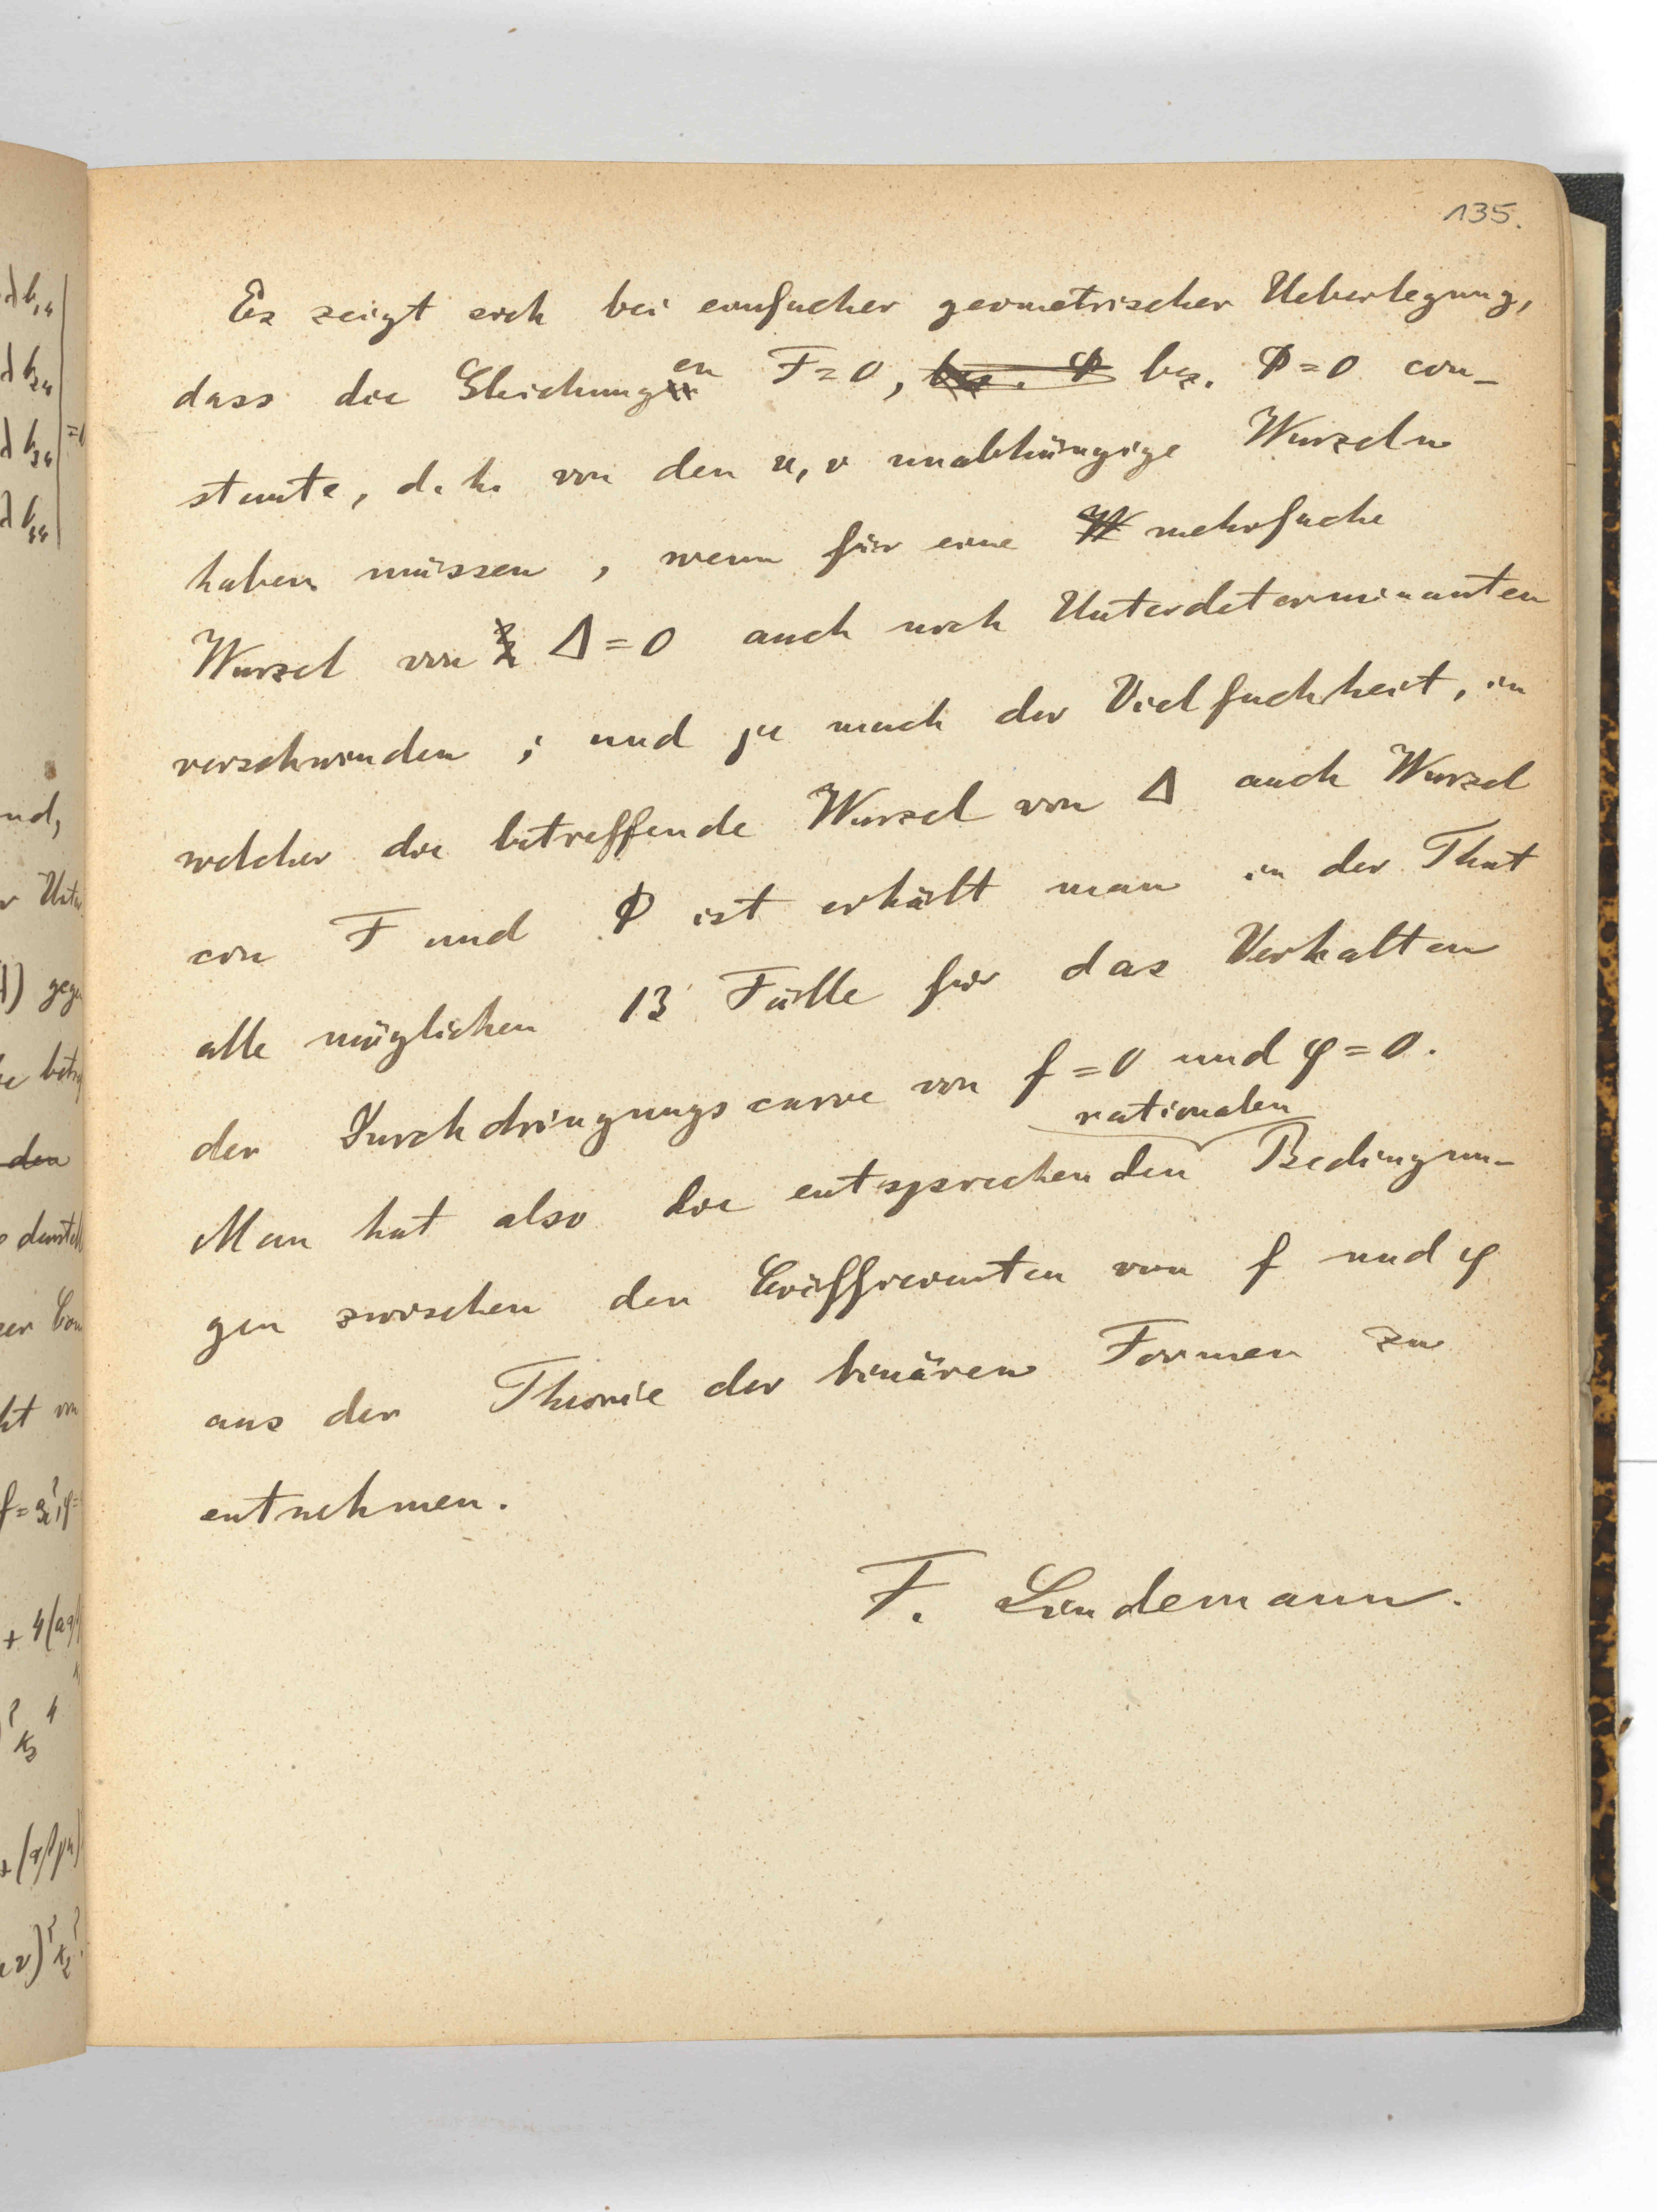 135.
Es zeigt sich bei einfacher geometrischer Ueberlegung,
dass die Gleichungen F=0, bez. Φ bez. Φ=0 con-
stante, d. h. von den u, v unabhängige Wurzeln
haben müssen, wenn für eine W mehrfache
Wurzel von Δ=0 auch noch Unterdeterminanten
verschwinden; und je nach der Vielfachheit, in
welcher die betreffende Wurzel von Δ auch Wurzel
von F und Φ ist erhält man in der That
alle möglichen 13 Fälle für das Verhalten
der Durchdringungscurve von f=0 und φ=0.
rationalen
Man hat also die entsprechenden Bedingun-
gen zwischen den Coëfficienten von f und φ
aus der Theorie der binären Formen zu
entnehmen.
F. Lindemann.
λb₁₄
λb₂₄
λb₃₄ =0
λb₄₄
nd,
den
f=
+4(